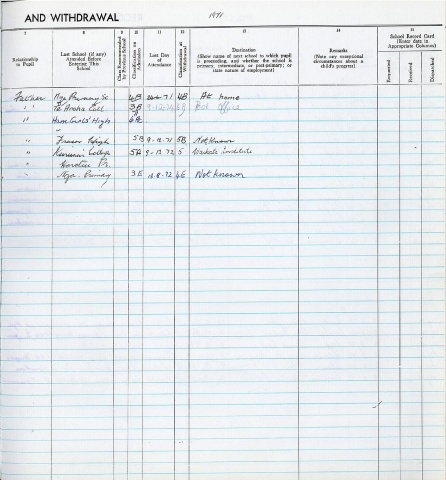 AND WITHDRAWAL
1971
7 8 9 10 11 12 13 14 15
Relationship to Pupil
Last School (if any) Attended Before Entering This School
Class Recommended by Previous School
Classification on Admission
Last Day of Attendance
Classification at Withdrawal
Destination
(Show name of next school to which pupil is proceeding, and whether the school is primary, intermediate, or post-primary; or state nature of employment)
Remarks
(Note any exceptional circumstances about a child's progress)
School Record Card
(Enter date in Appropriate Columns)
Requested
Received
Despatched
Father Nga Primary Sc 4B 71 4B At home
" " Te Aroha Coll 3B
" Ham Girls' High
"
" Fraser High 5B 9-12-71 5B Not Known
" College 5A 9-12-72 5 Institute
"
Nga. Primary 3E 72 4E Not Known